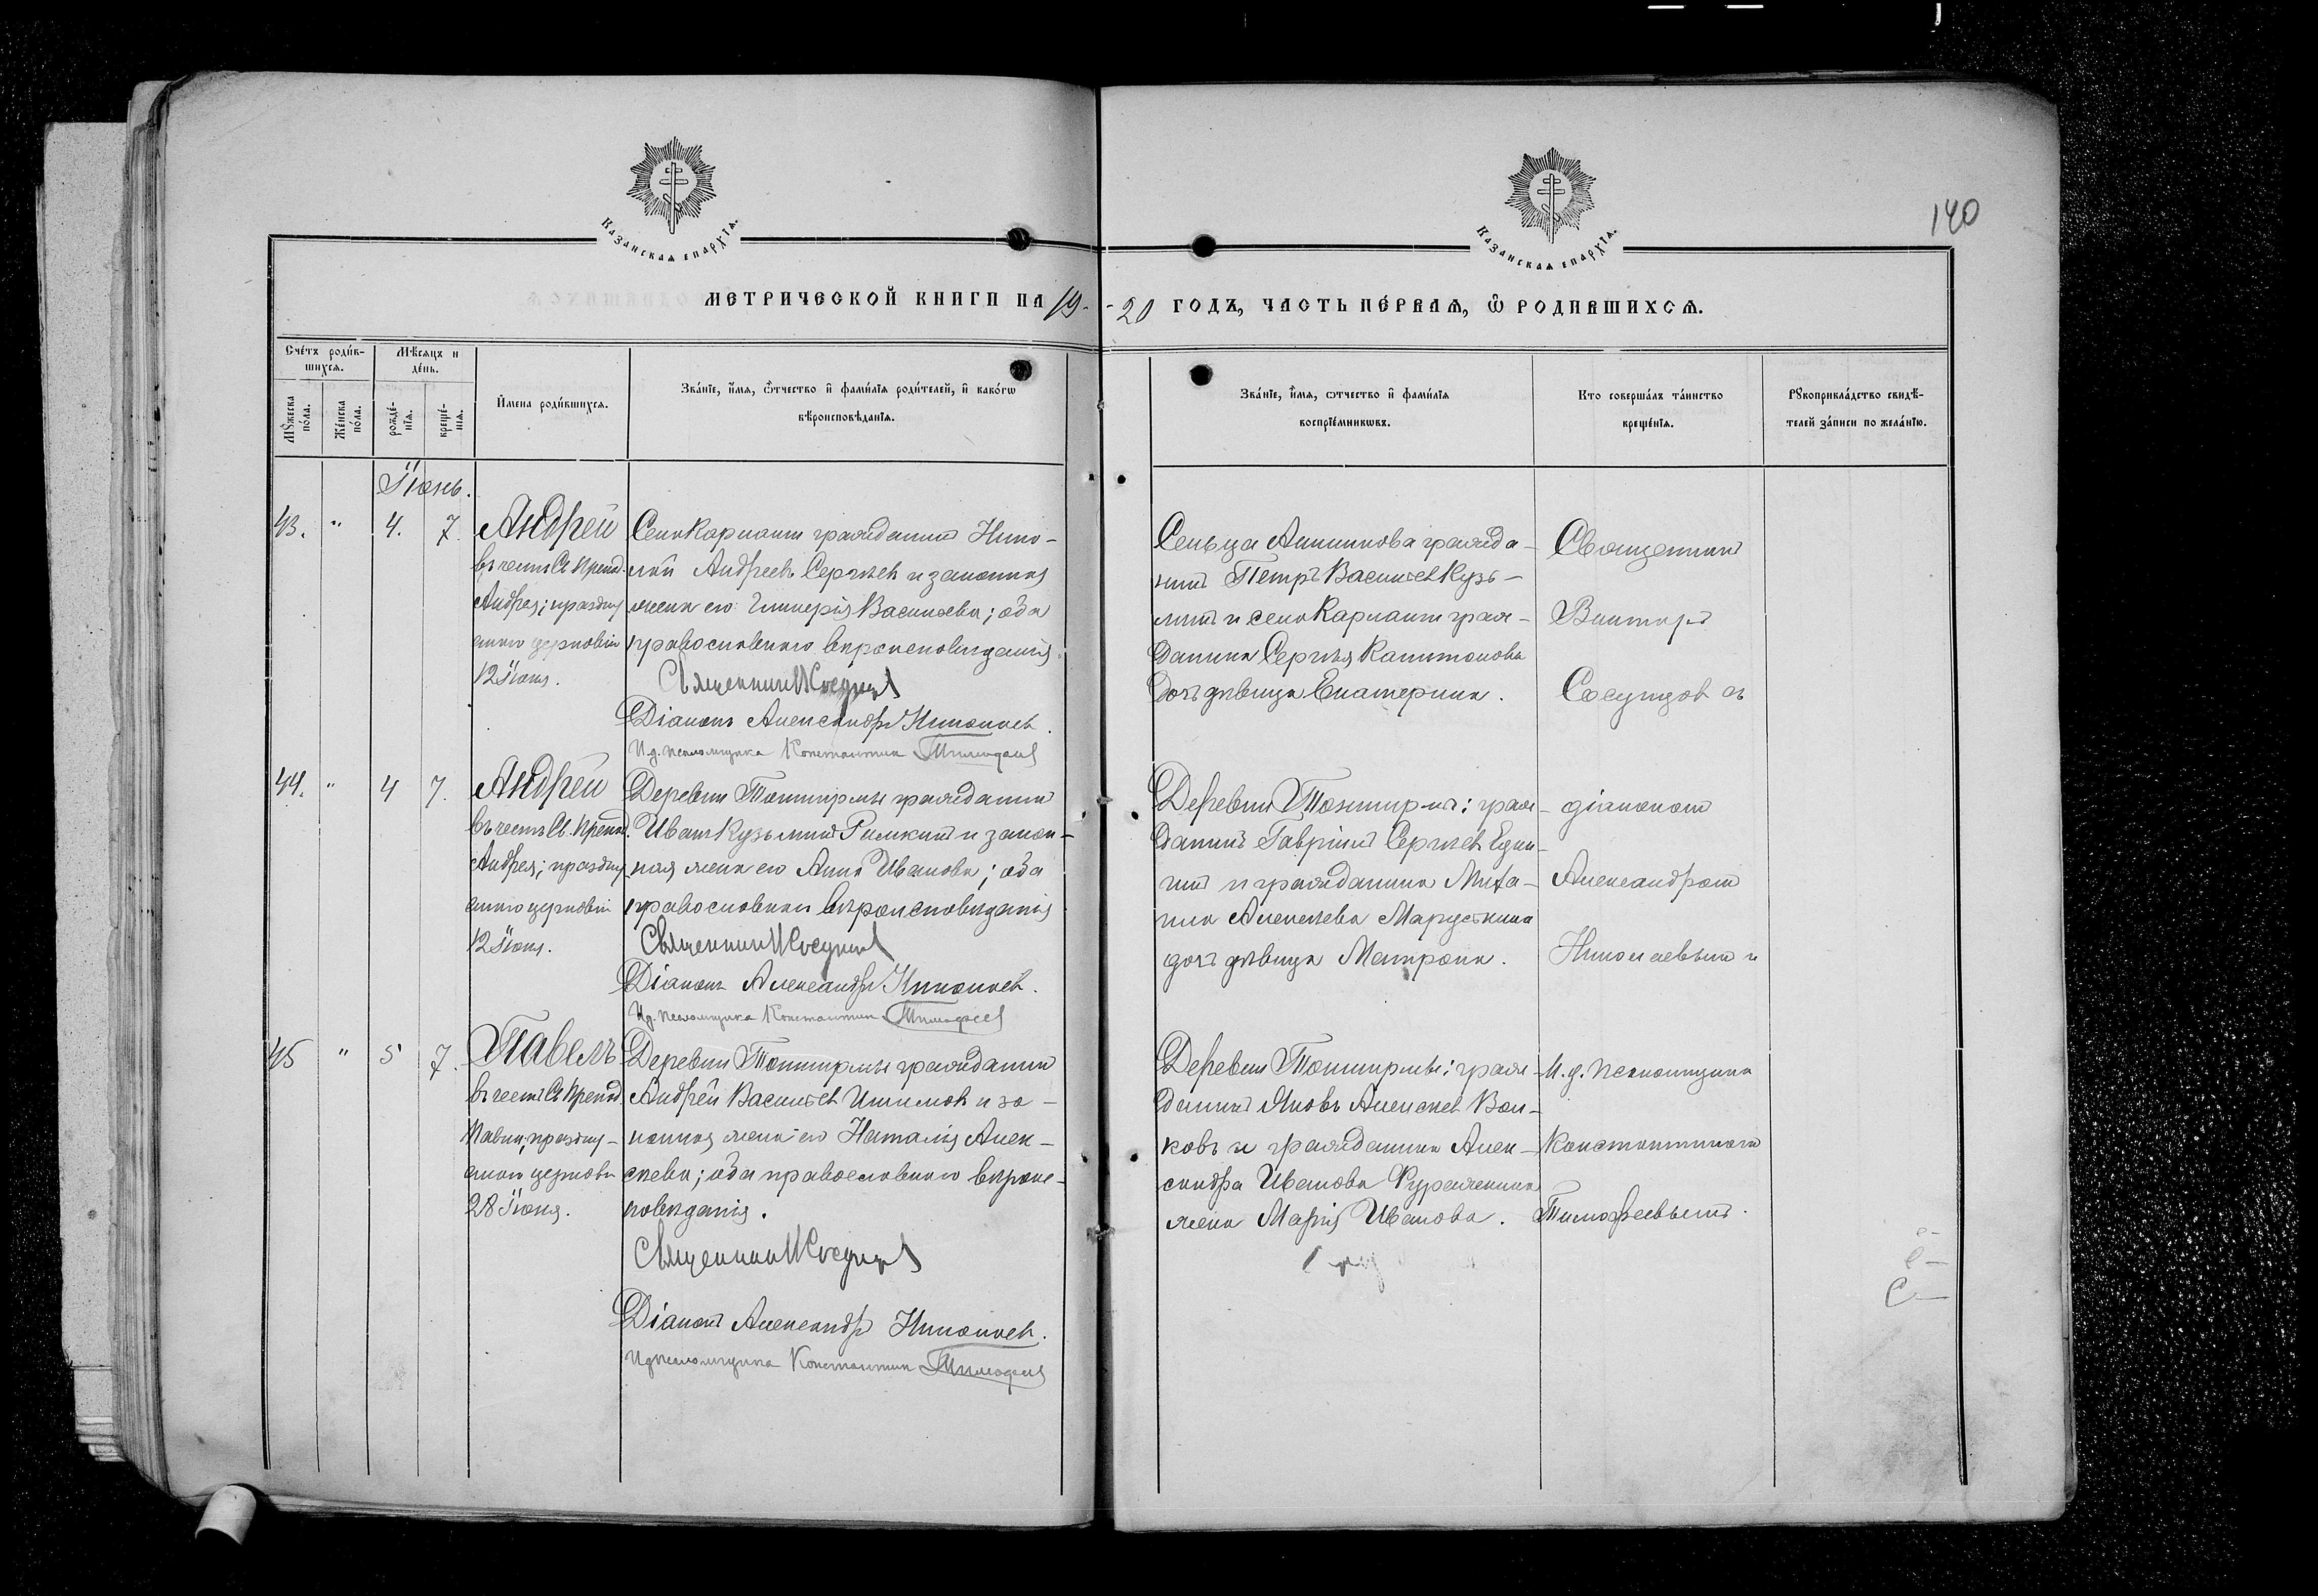 140
КАЗАНСКАЯ ЕПАРХІЯ.
КАЗАНСКАЯ ЕПАРХІЯ.
МЕТРИЧЕСКОЙ КНИГИ НА 19-
-20 ГОДЪ, ЧАСТЬ ПЕ́РВАЯ, Ѽ РОДИВШИХСЯ.
Сче́тъ роди́в-
шихся.
Мѣ́сяцъ и
де́нь.
Мꙋ́жеска по́ла.
Же́нска по́ла.
рожде́-
нїя.
креще́-
нїя.
И҆́мена роди́вшихся.
Зва́нїе, и҆́мя, ѻ҆́тчество и҆ фами́лїя роди́телей, и҆ како́гѡ
вѣроисповѣ́данїя.
Зва́нїе, и҆́мя, ѻтчество и҆ фами́лїя
воспрїе́мникѡвъ.
Кто соверша́лъ та́инство
креще́нїя.
Рꙋкоприкла́дство свидѣ́-
телей за́писи по жела́нїю.
Іюнь.
43. " 4. 7.
Андрей
въ честь Св. Препод.
Андрея; праздну
емаго церковію
12 Іюня.
Села Кармалы гражданинъ Нико-
лай Андреевъ Сергѣевъ и законная
жена его Васильева; оба
православнаго вѣроисповѣданія.
Священникъ В Сосунцовъ
Діаконъ Александръ Николаевъ.
И.д. псаломщика Константинъ Тимофеевъ
Сельца гражда-
нинъ Петръ Васильевъ Кузь-
минъ и села Кармалы граж-
данина Сергѣя Капитонова
дочь дѣвица Екатерина.
Священникъ
Викторъ
Сосунцовъ съ
44. " 4 7.
Андрей
въ честь Св. Препод.
Андрея; праздну
емаго церковію
12 Іюня.
Деревни гражданинъ
Иванъ Кузьминъ и закон-
ная жена его Анна Иванова; оба
православнаго вѣроисповѣданія
Священникъ В Сосунцовъ
Діаконъ Александръ Николаевъ.
И.д. псаломщика Константинъ Тимофеевъ
Деревни граж-
данинъ Гавріилъ Сергѣевъ
и гражданина Миха-
ила Алексѣева
дочь дѣвица Матрона.
діакономъ
Александромъ
Николаевымъ и
45 " 5 7.
Павелъ
въ честь Св. Препод.
Павла, праздну-
емаго церковію
28 Іюня.
Деревни гражданинъ
Андрей Васильевъ и за-
конная жена его Наталія Алек-
сѣева; оба православнаго вѣроис-
повѣданія.
Священникъ В Сосунцовъ
Діаконъ Александръ Николаевъ.
И.д. псаломщика Константинъ Тимофеевъ
Деревни граж-
данинъ Яковъ Алексѣевъ Вол-
ковъ и гражданина Алек-
сандра Иванова
жена Марія Иванова.
И.д. псаломщика
Константиномъ
Тимофеевымъ.